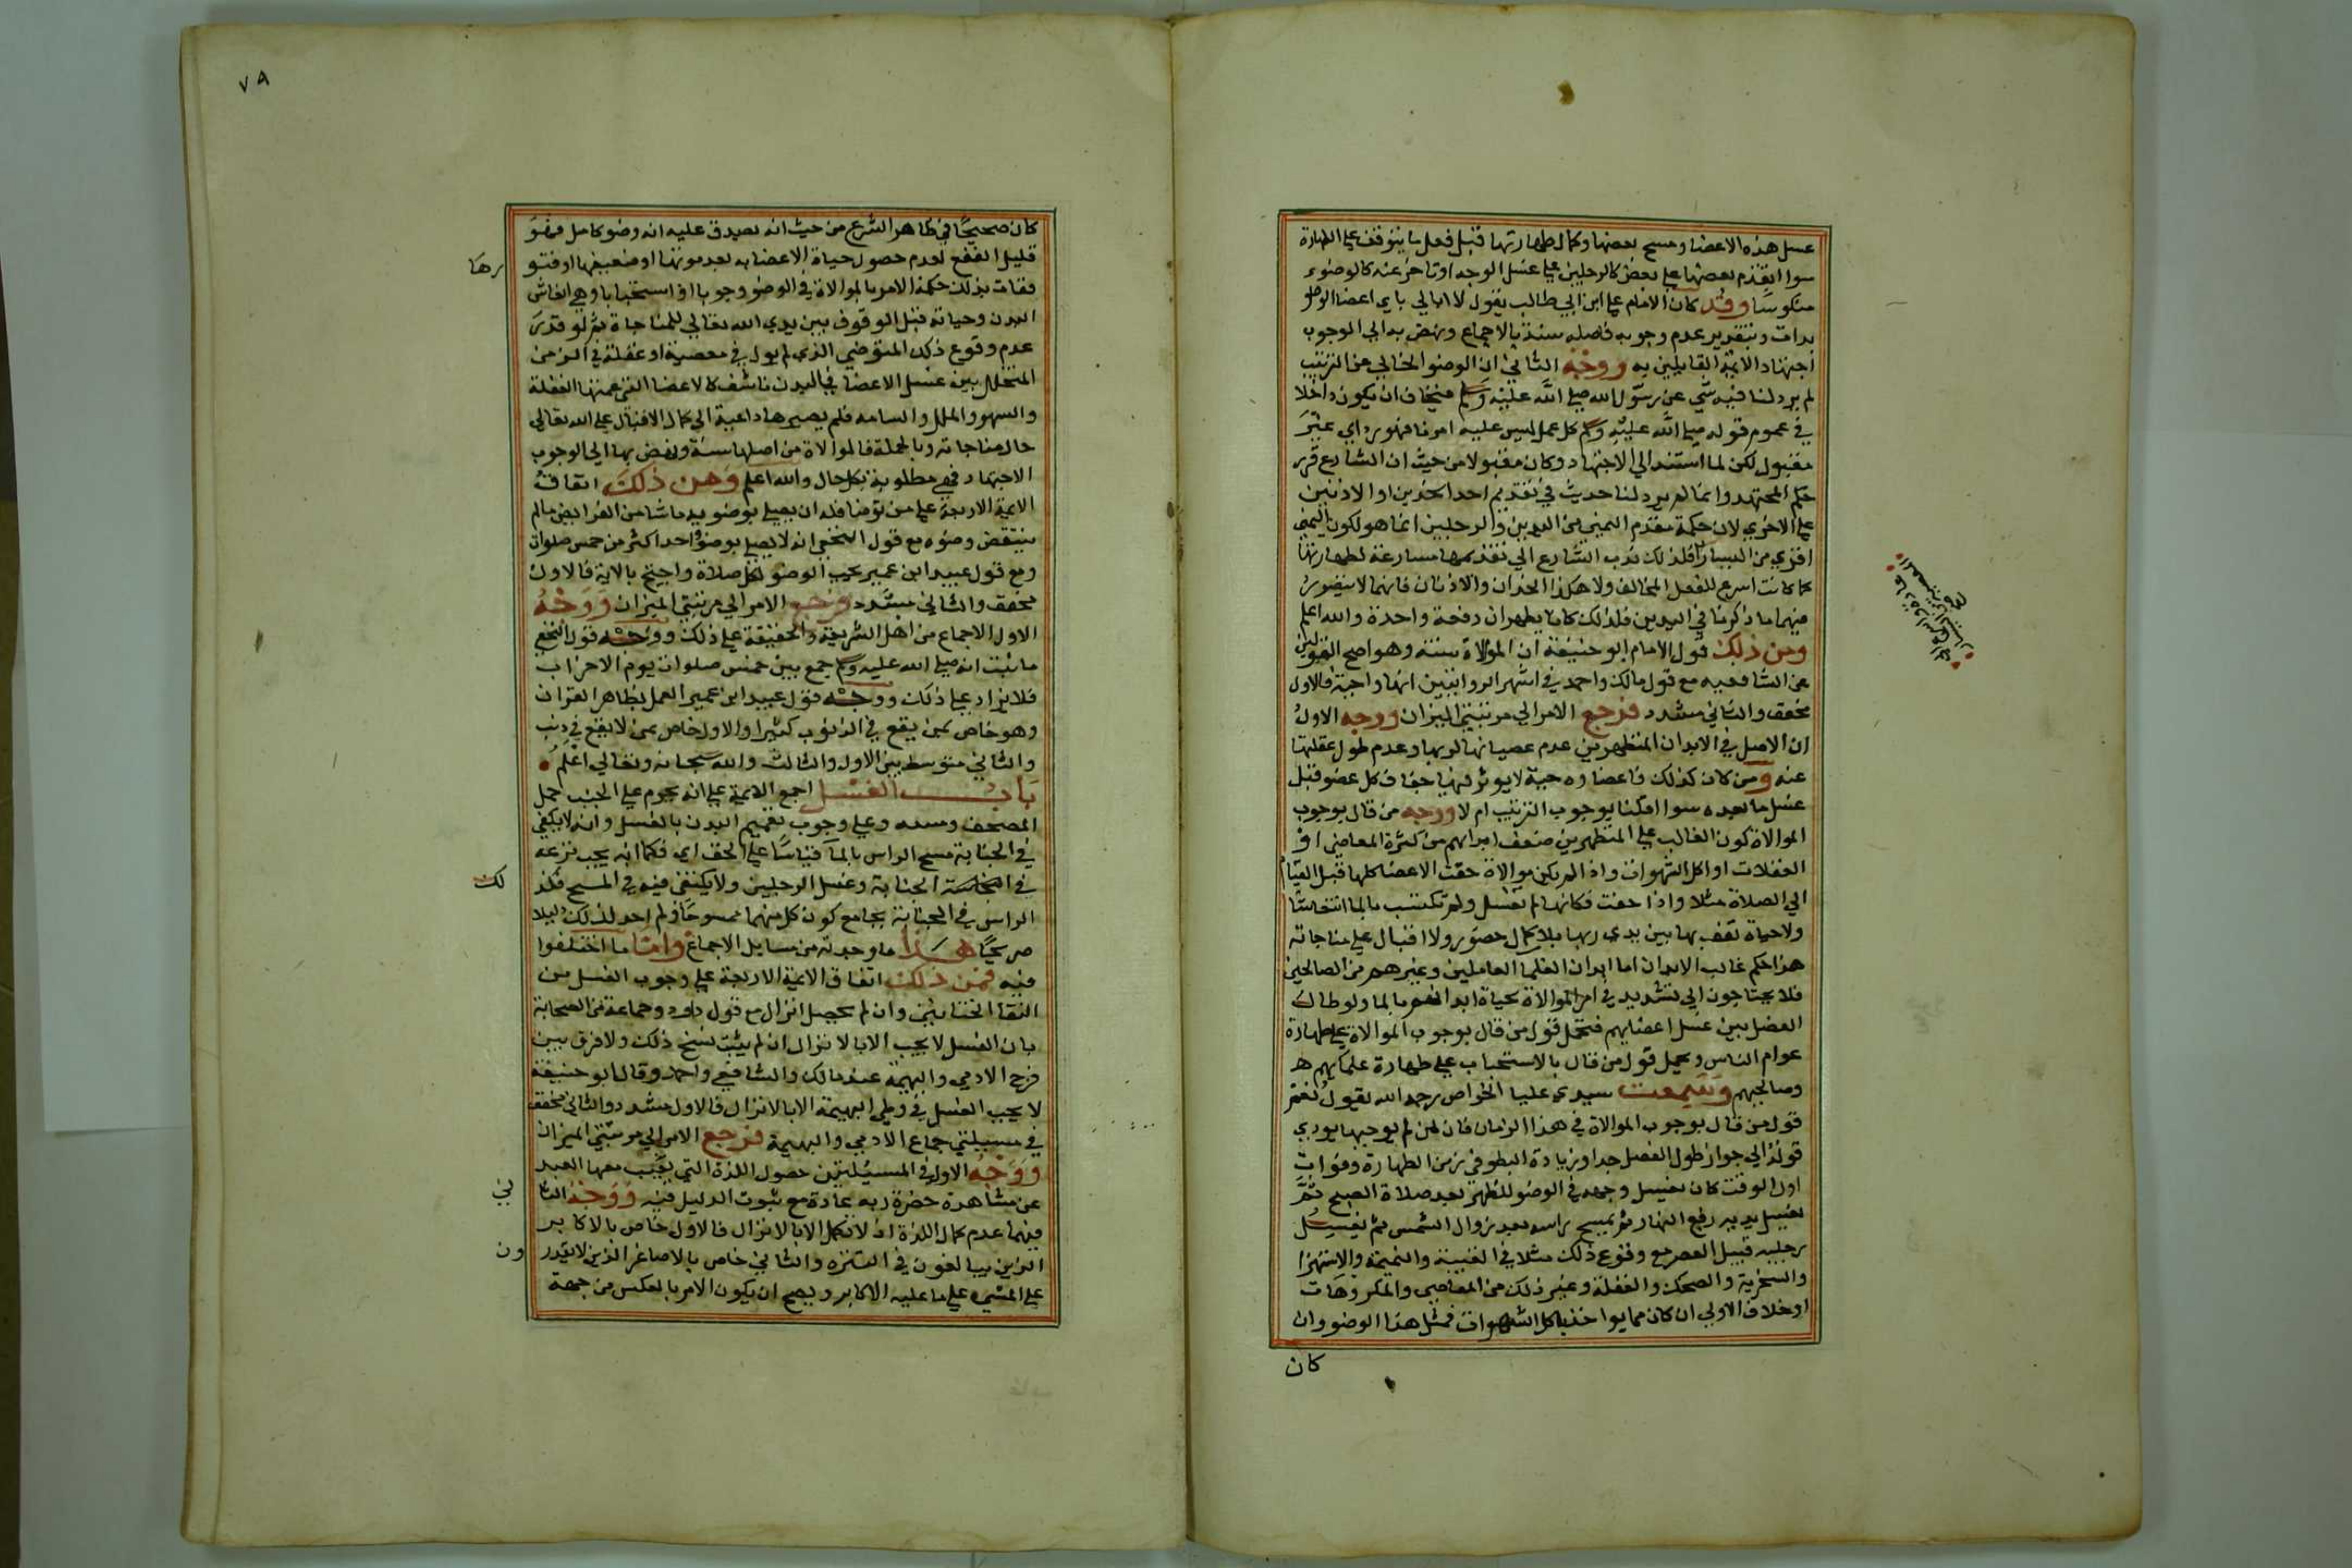 غسل هذه الاعضا ومسح بعضها وكمال طهارتها قبل فعل ما يتوقف على الطهارة
سوا تقدم بعضها على بعض كالرجلين على غسل الوجه او تاخر عنه كالوضوء
منكوسا وقد كان الامام علي ابن ابي طالب يقول لا ابالي باي اعضا الوضو
بدات وبتقدير عدم وجوبه فاصله سنة بالاجماع ونهض به الي الوجوب
اجتهاد الايمة القايلين به ووجه الثاني ان الوضو الخالي من الترتيب
لم يرد لنا فيه شي عن رسول الله صلى الله عليه وسلم فيخاف ان يكون داخلا
في عموم قوله صلى الله عليه وسلم كل عمل ليس عليه امرنا فهو رد اي غير
مقبول لكن لما استند الي الاجتهاد وكان مقبولا من حيث ان الشارع قرر
حكم المجتهد وانما لم يرد لنا حديث في تقديم احد الخدين او الاذنين
على الاخري لان حكمة تقدم اليمني من اليدين والرجلين انما هو لكون اليمني
اقوي من اليسار فلذلك ندب الشارع الي تقديمها مسارعة لطهارتها
كما كانت اسرع للفعل المخالف ولا هكذا الخدان والاذنان فانهما لا يتصور
فيهما ما ذكرنا في اليدين فلذلك كانا يطهران دفعة واحدة والله اعلم
ومن ذلك قول الامام ابو حنيفة ان الموالاة سنة وهو اصح القولين
عن الشافعية مع قول مالك واحمد في اشهر الروايتين انها واجبة فالاول
مخفف والثاني مشدد فرجع الامر الي مرتبتي الميزان ووجه الاول
ان الاصل في الابدان المتطهرين عدم عصيانها لربها وعدم طول غفلتها
عنه ومن كان كذلك فاعضاوه حية لا يوثر فيها جفاف كل عضو قبل
غسل ما بعده سوا قلنا بوجوب الترتيب ام لا ووجه من قال بوجوب
الموالاة كون الغالب على المتطهرين ضعف ابدانهم من كثرة المعاصي او
الغفلات او اكل الشهوات واذا لم يكن موالاة جفت الاعضا كلها قبل القيام
الي الصلاة مثلا واذا جفت فكانها لم تغسل ولم تكتسب بالما انتعاشا
ولا حياة تقف بها بين يدي ربها بلا كمال حضور ولا اقبال على مناجاته
هذا حكم غالب الابدان اما ابدان العلما العاملين وغيرهم من الصالحين
فلا يحتاجون الي تشديد في امر الموالاة لحياة ابدانهم بالما ولو طال
الفصل بين غسل اعضايهم فيحمل قول من قال بوجوب الموالاة على طهارة
عوام الناس ويحمل قول من قال بالاستحباب على طهارة علمايهم
وصالحيهم وسمعت سيدي عليا الخواص رحمه الله يقول نعم
قول من قال بوجوب الموالاة في هذا الزمان فان من لم يوجبها يودي
قوله الي جواز طول الفصل جدا وزيادة البطو في زمن الطهارة وفوات
اول الوقت كان يغسل وجهه في الوضو للظهر بعد صلاة الصبح ثم
يغسل يديه رفع النهار ثم يمسح راسه بعد زوال الشمس ثم يغسل
رجليه قبيل العصر مع وقوع ذلك مثلا في الغيبة والنميمة والاستهزا
والسخرية والضحك والغفلة وغير ذلك من المعاصي والمكروهات
او خلاف الاولي ان كان مما يواخذ باكل الشهوات فمثل هذا الوضو وان
كان
٧٩
كان صحيحا في ظاهر الشرع من حيث انه يصدق عليه انه وضو كامل فهو
قليل النفع لعدم حصول حياة الاعضا به بعد موتها او ضعفها او فتو
رها
ففات بذلك حكمة الامر بالموالاة في الوضو وجوبا او استحبابا وهي انعاش
البدن وحياته قبل الوقوف بين يدي الله تعالي للمناجاة ثم لو قدر
عدم وقوع ذلك المتوضي الذي لم يوال في معصية او غفلة في الزمن
المتخلل بين غسل الاعضا فالبدن ناشف كالاعضا التي عمتها الغفلة
والسهو والملل والسامه فلم يصيرها داعية الي كمال الاقبال على الله تعالي
حال مناجاته وبالجملة فالموالاة من اصلها سنة ونهض بها الي الوجوب
الاجتهاد فهي مطلوبة بكل حال والله اعلم ومن ذلك اتفاق
الايمة الاربعة على من توضا فله ان يصلي بوضويه ما شا من الفرايض ما لم
ينتقض وضوه مع قول النخعي انه لا يصلي بوضو واحد اكثر من خمس صلوات
ومع قول عبيد ابن عمير يجب الوضو لكل صلاة واحتج بالاية فالاول
مخفف والثاني مشدد فرجع الامر الي مرتبتي الميزان ووجه
الاول الاجماع من اهل الشريعة والحقيقة على ذلك ووجه قول النخعي
ما ثبت انه صلى الله عليه وسلم جمع بين خمس صلوات يوم الاحزاب
فلا يزاد على ذلك ووجه قول عبيد ابن عمير العمل بظاهر القران
وهو خاص بمن يقع في الذنوب كثيرا والاول خاص بمن لا يقع في ذنب
والثاني متوسط بين الاول والثالث والله سبحانه وتعالي اعلم
باب الغسل اجمع الايمة على انه يحرم على الجنب حمل
المصحف ومسه وعلى وجوب تعميم البدن بالغسل وانه لا يكفي
في الجنابة مسح الراس بالما قياسا على الخف اي فكما انه يجب نزعه
في الجنابة وغسل الرجلين ولا يكتفي فيه في المسح فكذ
لك
الراس في الجنابة بجامع كون كل منهما ممسوحا ولم اجد لذلك دليلا
صريحا هذا ما وجدته من مسايل الاجماع واما ما اختلفوا
فيه فمن ذلك اتفاق الايمة الاربعة على وجوب الغسل من
التقا الختانين وان لم يحصل انزال مع قول داود وجماعة من الصحابة
بان الغسل لا يجب الا بالانزال ان لم يثبت نسخ ذلك ولا فرق بين
فرج الادمي والبهيمة عند مالك والشافعي واحمد وقال ابو حنيفة
لا يجب الغسل في وطي البهيمة الا بالانزال فالاول مشدد والثاني مخفف
في مسيلتي جماع الادمي والبهيمة فرجع الامر الي مرتبتي الميزان
ووجه الاول في المسيلتين حصول اللذة التي يغيب معها العبد
عن مشاهدة حضرة ربه عادة مع ثبوت الدليل فيه ووجه الثا
ني
فيهما عدم كمال اللذة اذ لا تكمل الا بالانزال فالاول خاص بالاكابر
الذين يبالغون في التنزه والثاني خاص بالاصاغر الذين لا يقدر
ون
على المشي على ما عليه الاكابر ويصح ان يكون الامر بالعكس من جهة